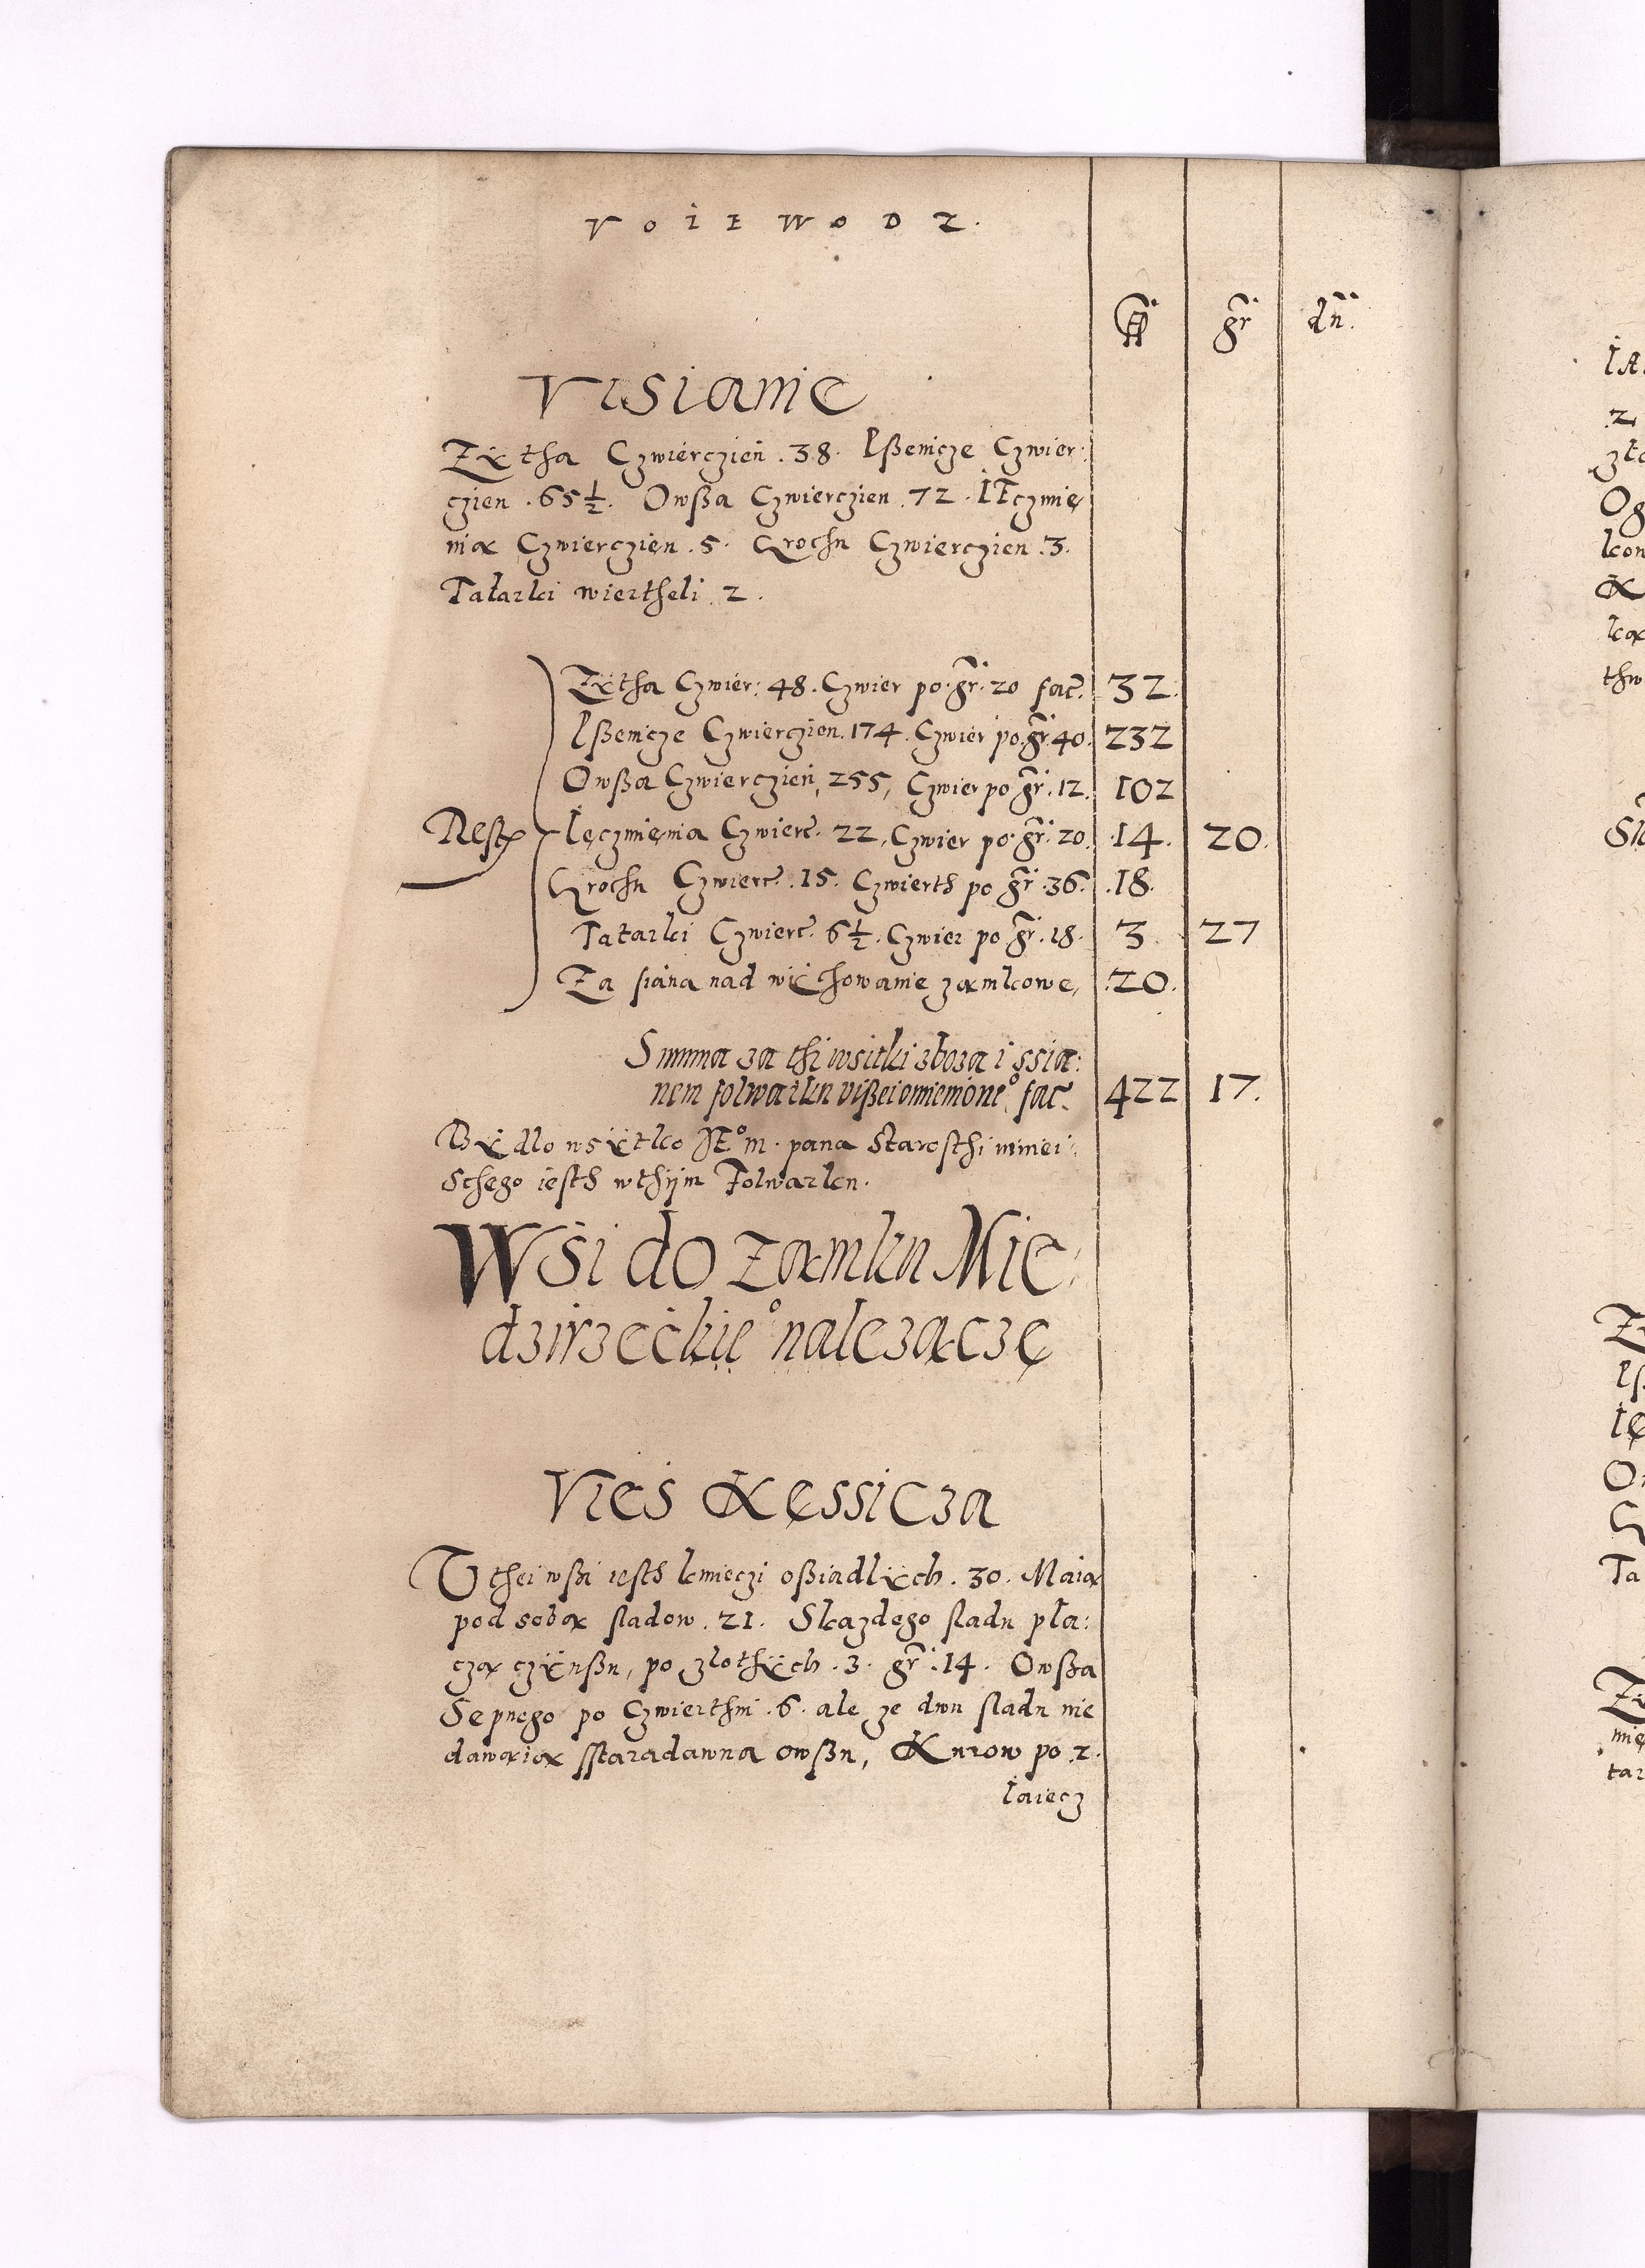 VOIEWODZ.
fl gr dn.
VISIANIE
Zÿtha Czwierczień .38. Pßenicze Czwier:
czien .65½. Owßa Czwierczien .72. IĘczmię,
nia Czwierczien .5. Grochu Czwierczien .3.
Tatarki wiertheli .2.
Zÿtha Czwier: 48. Czwier po gr. 20 fac. 32.
Pßenicze Czwierczien .174. Czwier po gr. 40. 232
Owßa Czwierczień, 255, Czwier po gr. 12. 102
Rest Ięczmięnia Czwierc. 22, Czwier po gr. 20. 14. 20.
Grochu Czwierc. 15. Czwierth po gr. 36. 18.
Tatarki Czwierc. 6½. Czwier po gr. 18. 3. 27
Za siana nad wichowanie ząmkowe, 20.
Summa za thi wsitki zboza i ssia:
nem folwarku vißei omienione° fac. 422 17.
Bÿdlo wsÿtko JE°m. pana Starosthi ninei:
schego iesth wthÿm Folwarku.
Wsi do Ząmku Mię,
dzirzeckie° nalezącze
VIES Kęssicza
W thei wßi iesth kmieczi oßiadlÿch .30. Maią
pod sobą sladow .21. S kazdego sladu pla:
czą czÿnßu, po zlothÿch .3. gr .14. Owßa
Sepnego po Czwierthni .6. ale ze dwu sladu nie
dawaią sstaradawna owßu, Kurow po 2.
Iaiecz